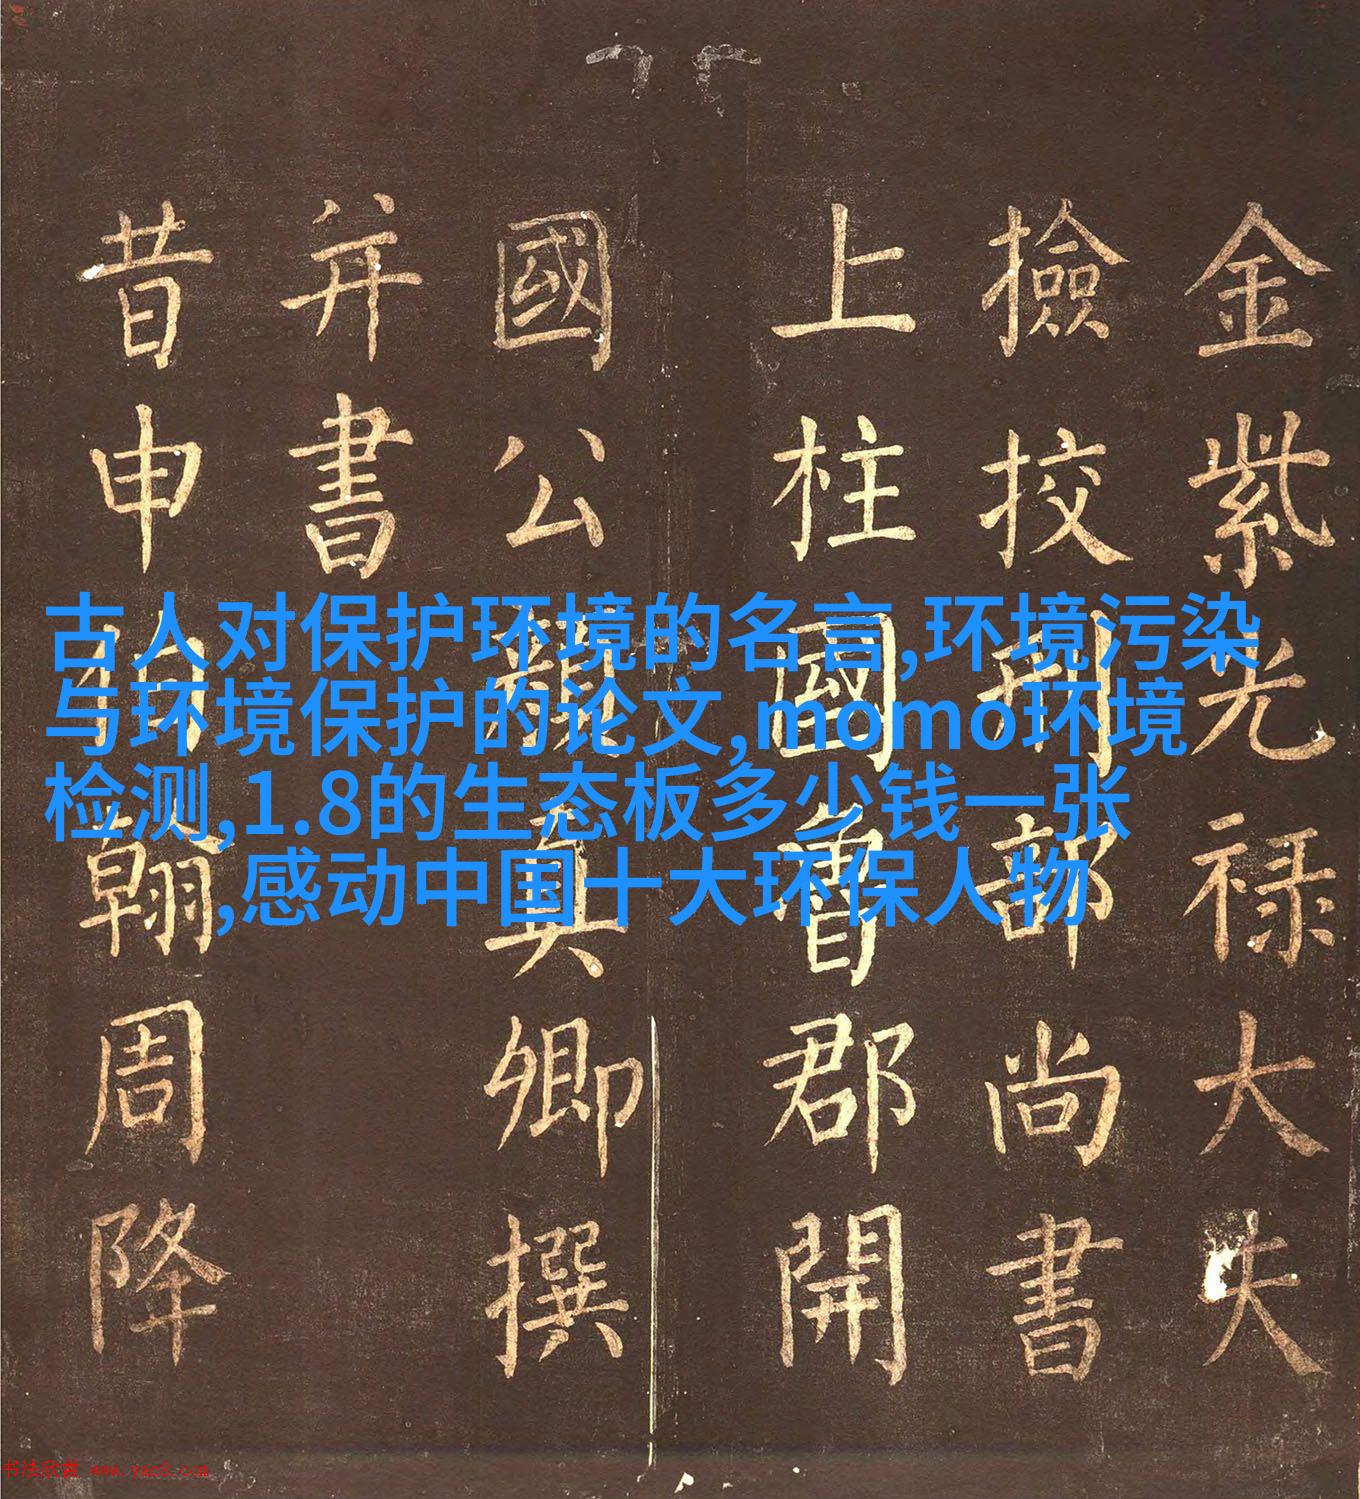 金紫光禄大夫
撿挍刑部尚書
上柱國魯郡開
國公顔真卿撰
并書
昔申伯翰周降
古人对保护环境的名言,环境污染
与环境保护的论文,momo环境
检测,1.8的生态板多少钱一张
,感动中国十大环保人物
书法欣赏 www.yac8.com